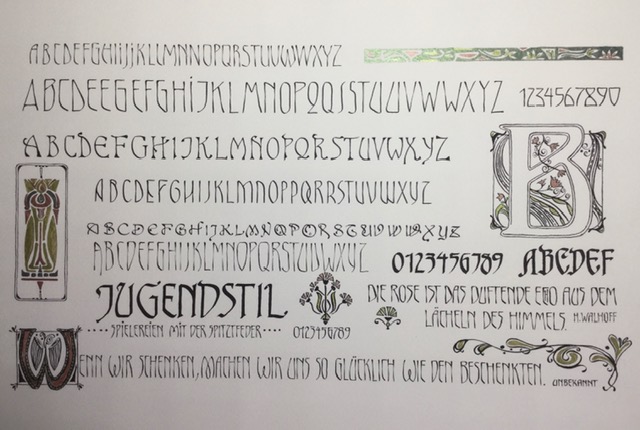 ABCDEFGHIIJJKLLMNNOPQRSTUUVWWXYZ
ABCDEEGEFGHIJKLMNOPQQSSTUUVWWXYZ 1234567890
ABCDEFGHIJKLMNOPQRSTUVWXYZ
B
ABCDEFGHIJKLMNOPPQRRSTUVWXYZ
ABCDEFGHIJKLMNOPQRSTUVWXYZ
ABCDEFGHIJKLMNOPQRSTUVWXYZ 0123456789 ABCDEF
JUGENDSTIL
SPIELEREIEN MIT DER SPITZFEDER 0123456789
DIE ROSE IST DAS DUFTENDE ECHO AUS DEM
LÄCHELN DES HIMMELS. H.WALHOFF
WENN WIR SCHENKEN, MACHEN WIR UNS SO GLÜCKLICH WIE DEN BESCHENKTEN. UNBEKANNT